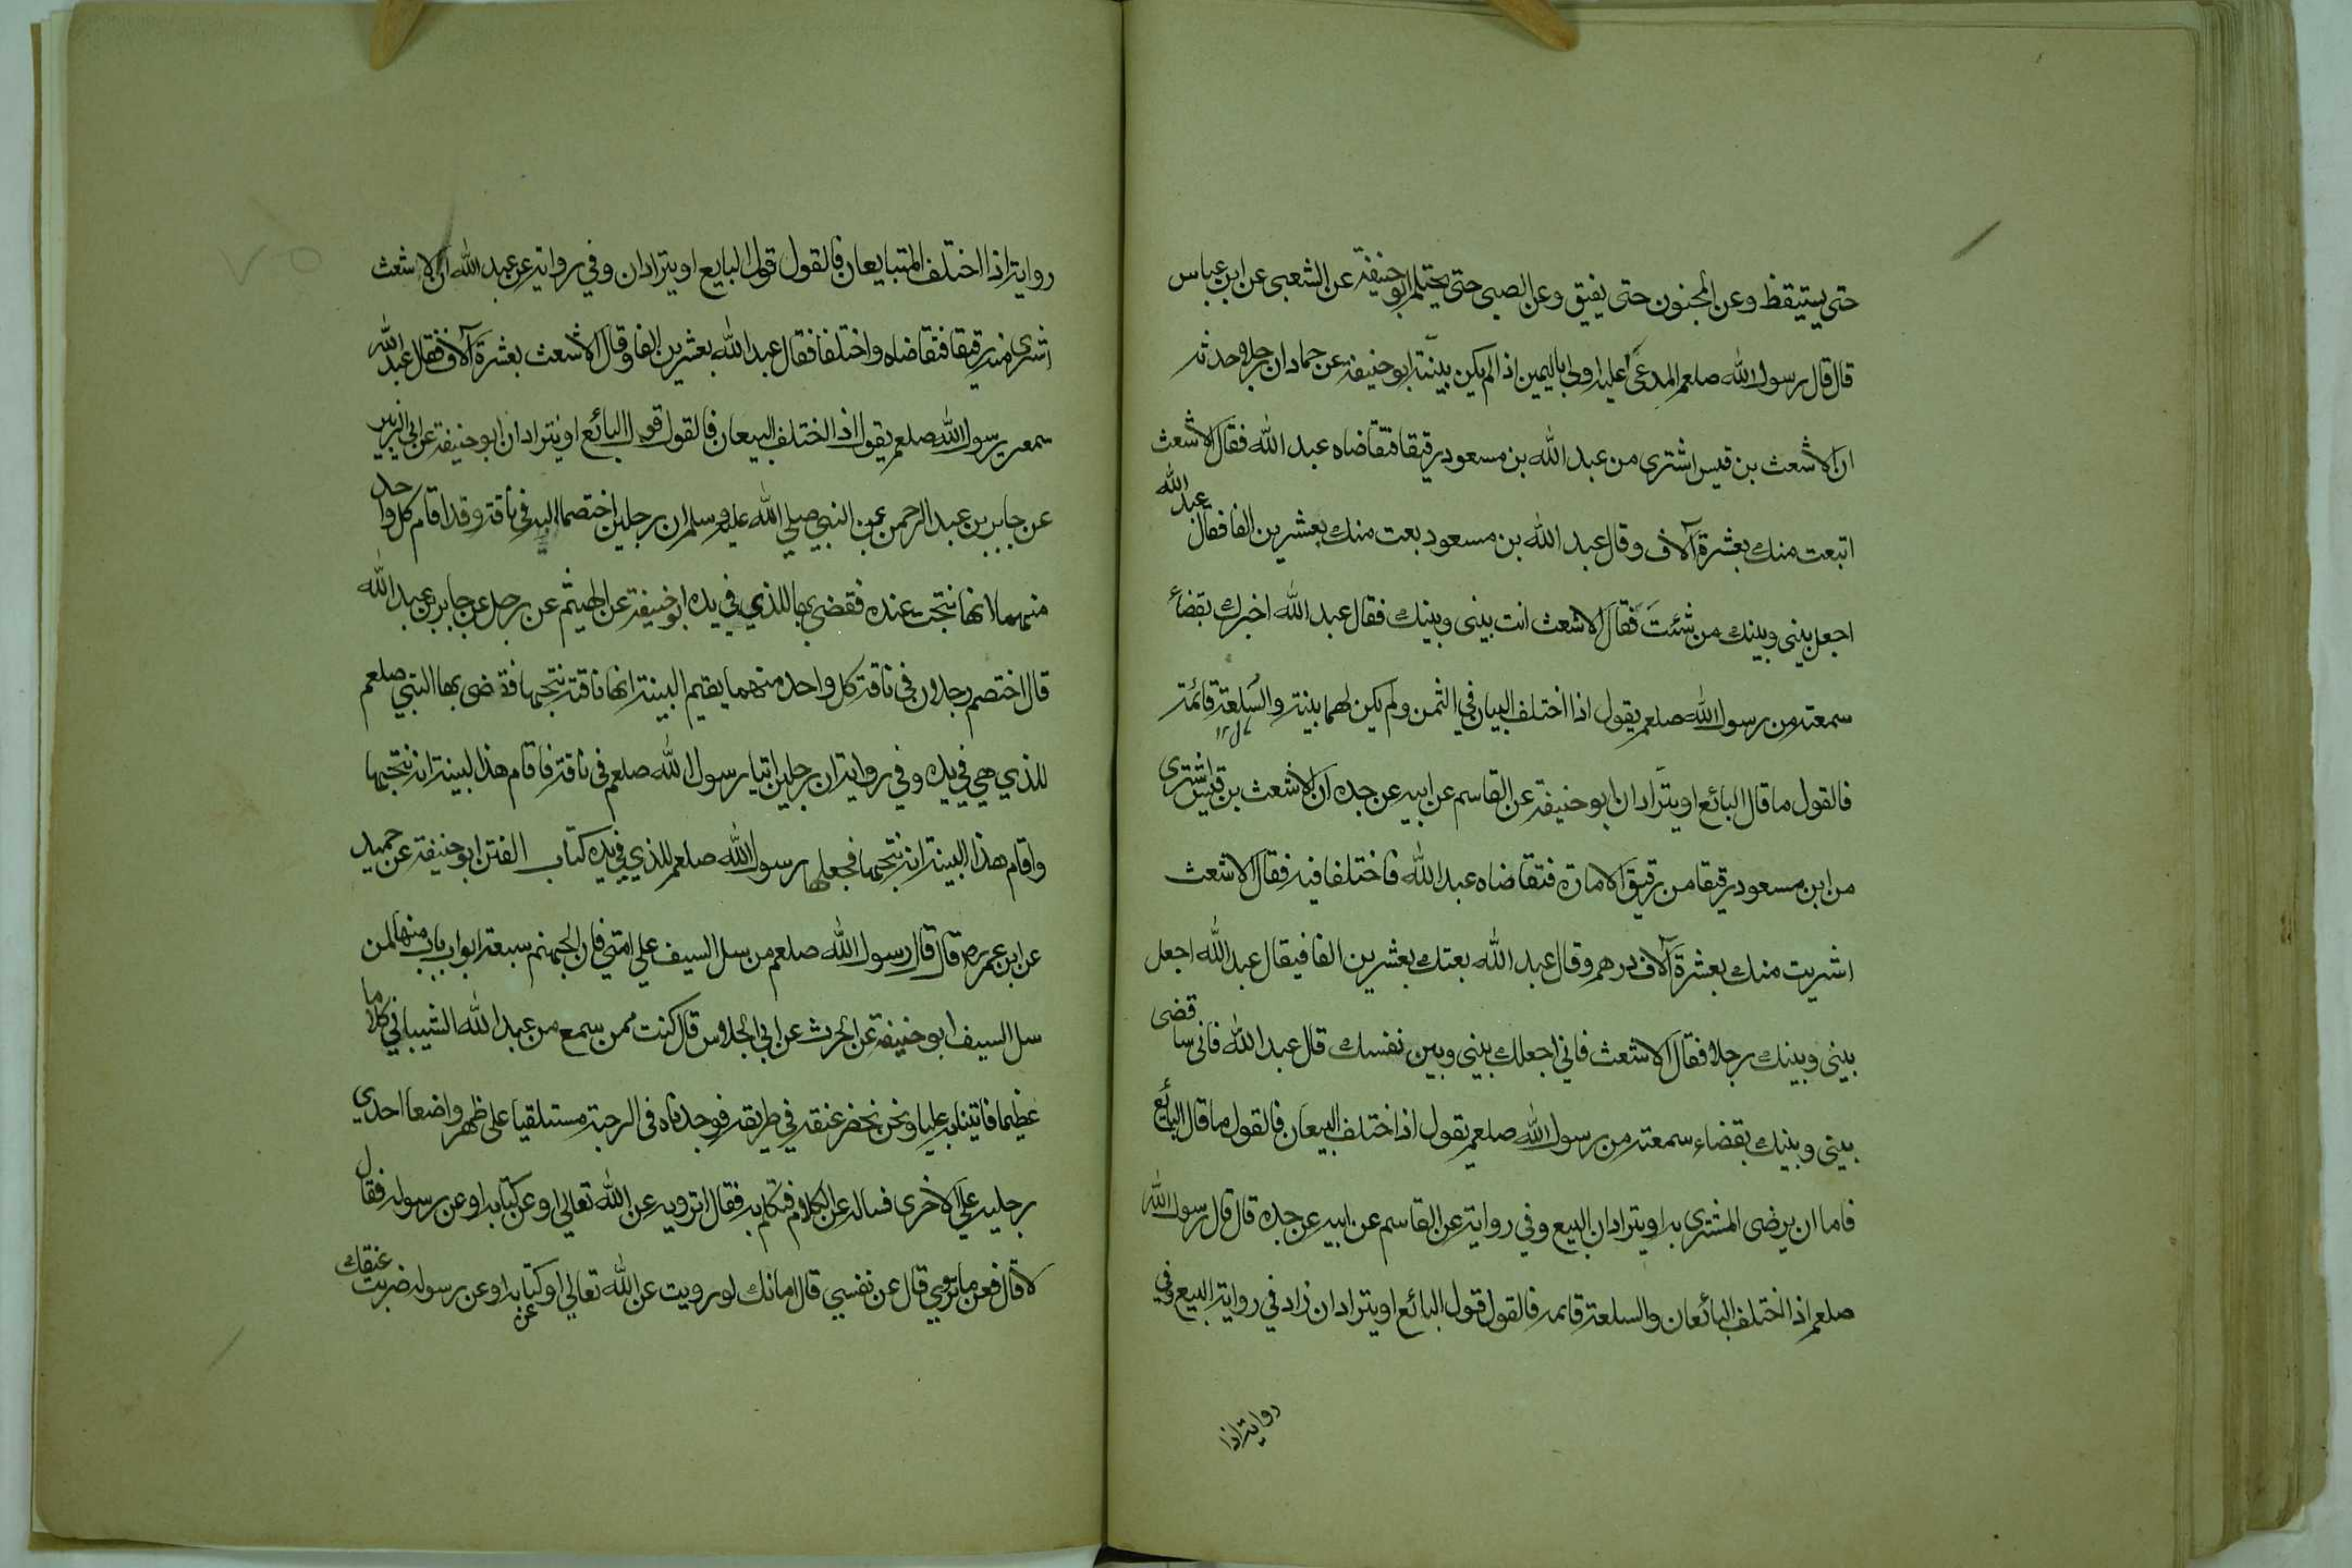 حتى يستيقظ وعن المجنون حتى يفيق وعن الصبى حتى يحتلم ابو حنيفة عن الشعبى عن ابن عباس
قال قال رسول الله صلعم المدعى عليه اولى باليمين اذا لم يكن بينة ابو حنيفة عن حماد ان رجلا حدثه
ان الاشعث بن قيس اشترى من عبد الله بن مسعود رقيقا فتقاضاه عبد الله فقال الاشعث
اتبعت منك بعشرة آلاف وقال عبد الله بن مسعود بعت منك بعشرين الفا فقال عبد الله
اجعل بينى وبينك من شئت فقال الاشعث انت بينى وبينك فقال عبد الله اخبرك بقضاء
سمعته من رسول الله صلعم يقول اذا اختلف البيان في الثمن ولم يكن لهما بينة والسلعة قائمة
فالقول ما قال البائع او يترادان ابو حنيفة عن القاسم عن ابيه عن جده ان الاشعث بن قيس اشترى
من ابن مسعود رقيقا من رقيق الامارة فتقاضاه عبد الله فاختلفا فيه فقال الاشعث
اشريت منك بعشرة آلاف درهم وقال عبد الله بعتك بعشرين الفا فيقال عبد الله اجعل
بينى وبينك رجلا فقال الاشعث فاني اجعلك بينى وبين نفسك قال عبد الله فانى ساقضى
بينى وبينك بقضاء سمعته من رسول الله صلعم يقول اذا اختلف البيعان فالقول ما قال البائع
فاما ان يرضى المشترى به او يترادان البيع وفي رواية عن القاسم عن ابيه عن جده قال قال رسول الله
صلعم اذا اختلف البائعان والسلعة قائمه فالقول قول البائع او يترادان زاد في رواية البيع وفي
رواية اذا
رواية اذا اختلف المتبايعان فالقول قول البايع او يترادان وفي رواية عن عبد الله ان الاشعث
اشرى منه رقيقا فتقاضاه واختلفا فقال عبد الله بعشرين الفا وقال الاشعث بعشرة آلاف فقال عبد الله
سمعت رسول الله صلعم يقول اذا اختلف البيعان فالقول قول البائع او يترادان ابو حنيفة عن ابي الزبير
عن جابر بن عبد الرحمن عن النبي صلي الله عليه وسلم ان رجلين اختصما اليه في ناقة وقد اقام كل واحد
منهما انها نتجت عنده فقضى بها للذي في يده ابو حنيفة عن الهيثم عن رجل عن جابر بن عبد الله
قال اختصم رجلان فى ناقة كل واحد منهما يقيم البينة انها ناقته نتجها فقضى بها النبي صلعم
للذي هي في يده وفي رواية ان رجلين اتيا رسول الله صلعم فى ناقة فاقام هذا البينة انه نتجها
واقام هذا البينة انه نتجها فجعلها رسول الله صلعم للذي في يده كتاب الفتن ابو حنيفة عن حميد
عن ابن عمر رض قال قال رسول الله صلعم من سل السيف علي امتي فان لجهنم سبعة ابواب باب منها لمن
سل السيف ابو حنيفة عن الحرث عن ابي الجلاس قال كنت ممن سمع من عبد الله الشيباني كلاما
عظيما فاتينا به عليا ونحن نحضر عنقه في طريقه فوجدناه فى الرحبة مستلقيا على ظهره واضعا احدي
رجليه علي الاخرى فساله عن الكلام فتكلم به فقال اترويه عن الله تعالي او عن كتابه او عن رسوله فقال
لا قال فعن ما تروي قال عن نفسي قال اما انك لو رويت عن الله تعالي او عن كتابه او عن رسوله ضربت عنقك